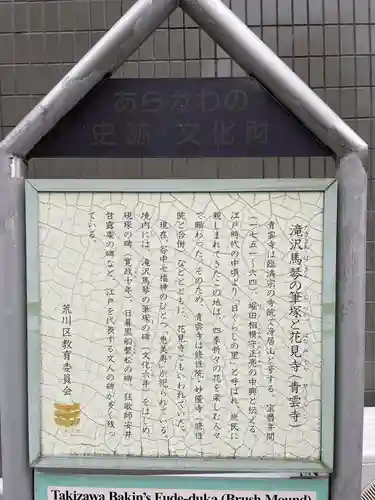 あらかわの
史跡・文化財
滝沢馬琴の筆塚と花見寺（青雲寺）
青雲寺は臨済宗の寺院で浄居山と号する。宝暦年間
（一七五一〜六四）、堀田相模守正亮の中興と伝える。
江戸時代の中頃より「日ぐらしの里」と呼ばれ、庶民に
親しまれてきたこの地は、四季折々の花を楽しむ人々
で賑わった。そのため、青雲寺は修性院・妙隆寺（修性
院と合併）などとともに、花見寺ともいわれていた。
現在、谷中七福神のひとつ「恵比寿」が祀られている。
境内には、滝沢馬琴の筆塚の碑（文化六年）をはじめ、
硯塚の碑（寛政十年）、日暮里船繋松の碑、狂歌師安井
甘露庵の碑など、江戸を代表する文人の碑が多く残っ
ている。
荒川区教育委員会
Takizawa Bakin's Fude-duka (Brush Mound)